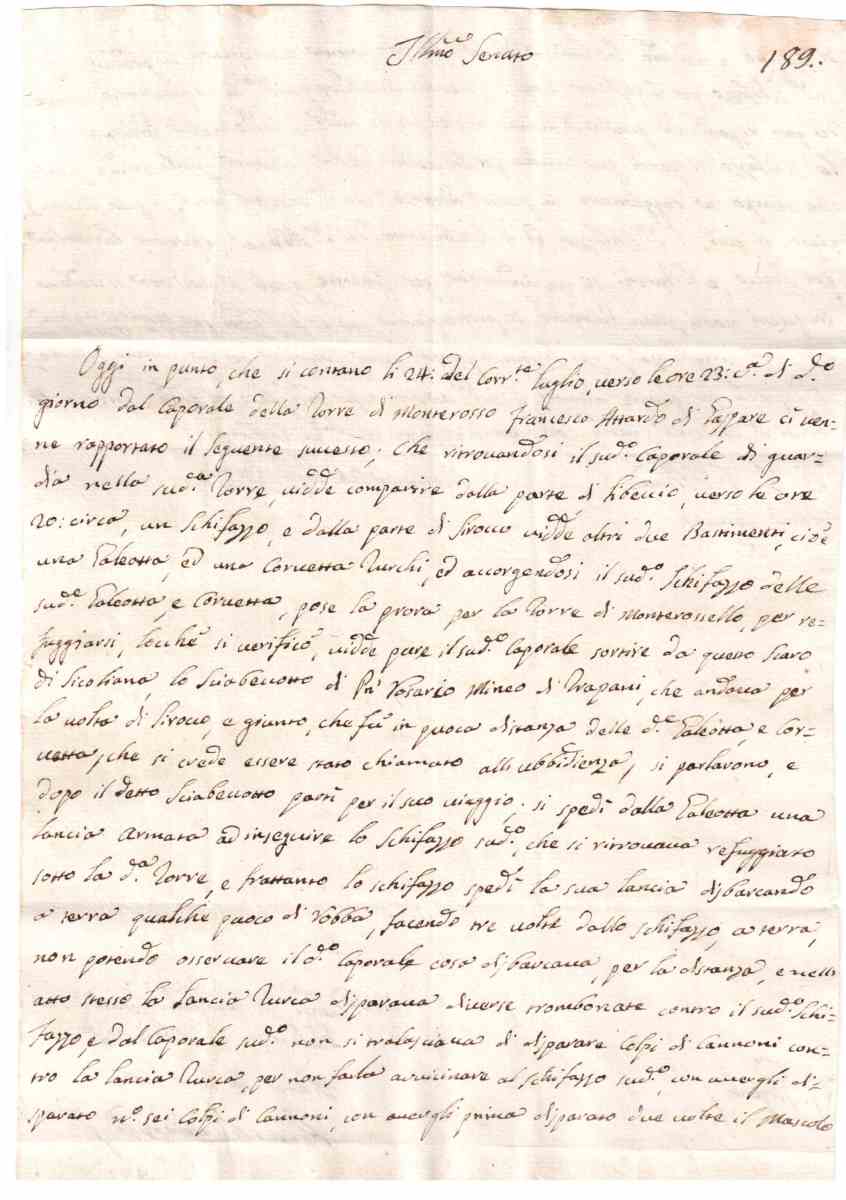 Illmo Senato
189.
Oggi in punto, che si contano li 24: del Corr.te luglio, verso le ore 23: c.a di d.o
giorno dal Caporale della Torre di Monterosso Francesco Attardo di Gaspare ci ven=
ne rapportato il seguente successo; Che ritrovandosi il sud.o Caporale di guar=
dia nella sud.a Torre, vidde comparire dalla parte di libeccio, verso le ore
20: circa, un Schifazzo, e dalla parte di Sirocco vidde altri due Bastimenti, cioè
una Galeotta, ed una Corvetta Turchi, ed accorgendosi il sud.o Schifazzo delle
sud.e Galeotta, e Corvetta, pose la prora per la Torre di Monterossello, per re=
fuggiarsi, locchè si verificò, vidde pure il sud.o Caporale sortire da questo Scaro
di Siculiana, lo Sciabecotto di Pn Rosario Mineo di Trapani, che andava per
la volta di Sirocco, e giunto, che fù in puoca distanza delle d.e Galeotta, e Cor=
vetta, che si crede essere stato chiamato all'ubbidienza, si parlarono, e
dopo il detto Sciabecotto partì per il suo viaggio; si spedì dalla Galeotta una
lancia armata ad inseguire lo Schifazzo sud.o, che si ritrovava refuggiato
sotto la d.a Torre, e frattanto lo schifazzo spedì la sua lancia disbarcando
a terra qualche puoco di robba, facendo tre volte dallo schifazzo, a terra,
non potendo osservare il d.o Caporale cosa disbarcava, per la distanza, e nell'
atto stesso la lancia Turca disparava diverse tromboniate contro il sud.o Schi=
fazzo, e dal Caporale sud.o non si tralasciava di disparare Colpi di Cannoni con=
tro la lancia Turca, per non farla avvicinare al schifazzo sud.o, con avergli di=
sparato n.o sei Colpi di Cannoni, con avergli prima disparato due volte il Mascolo